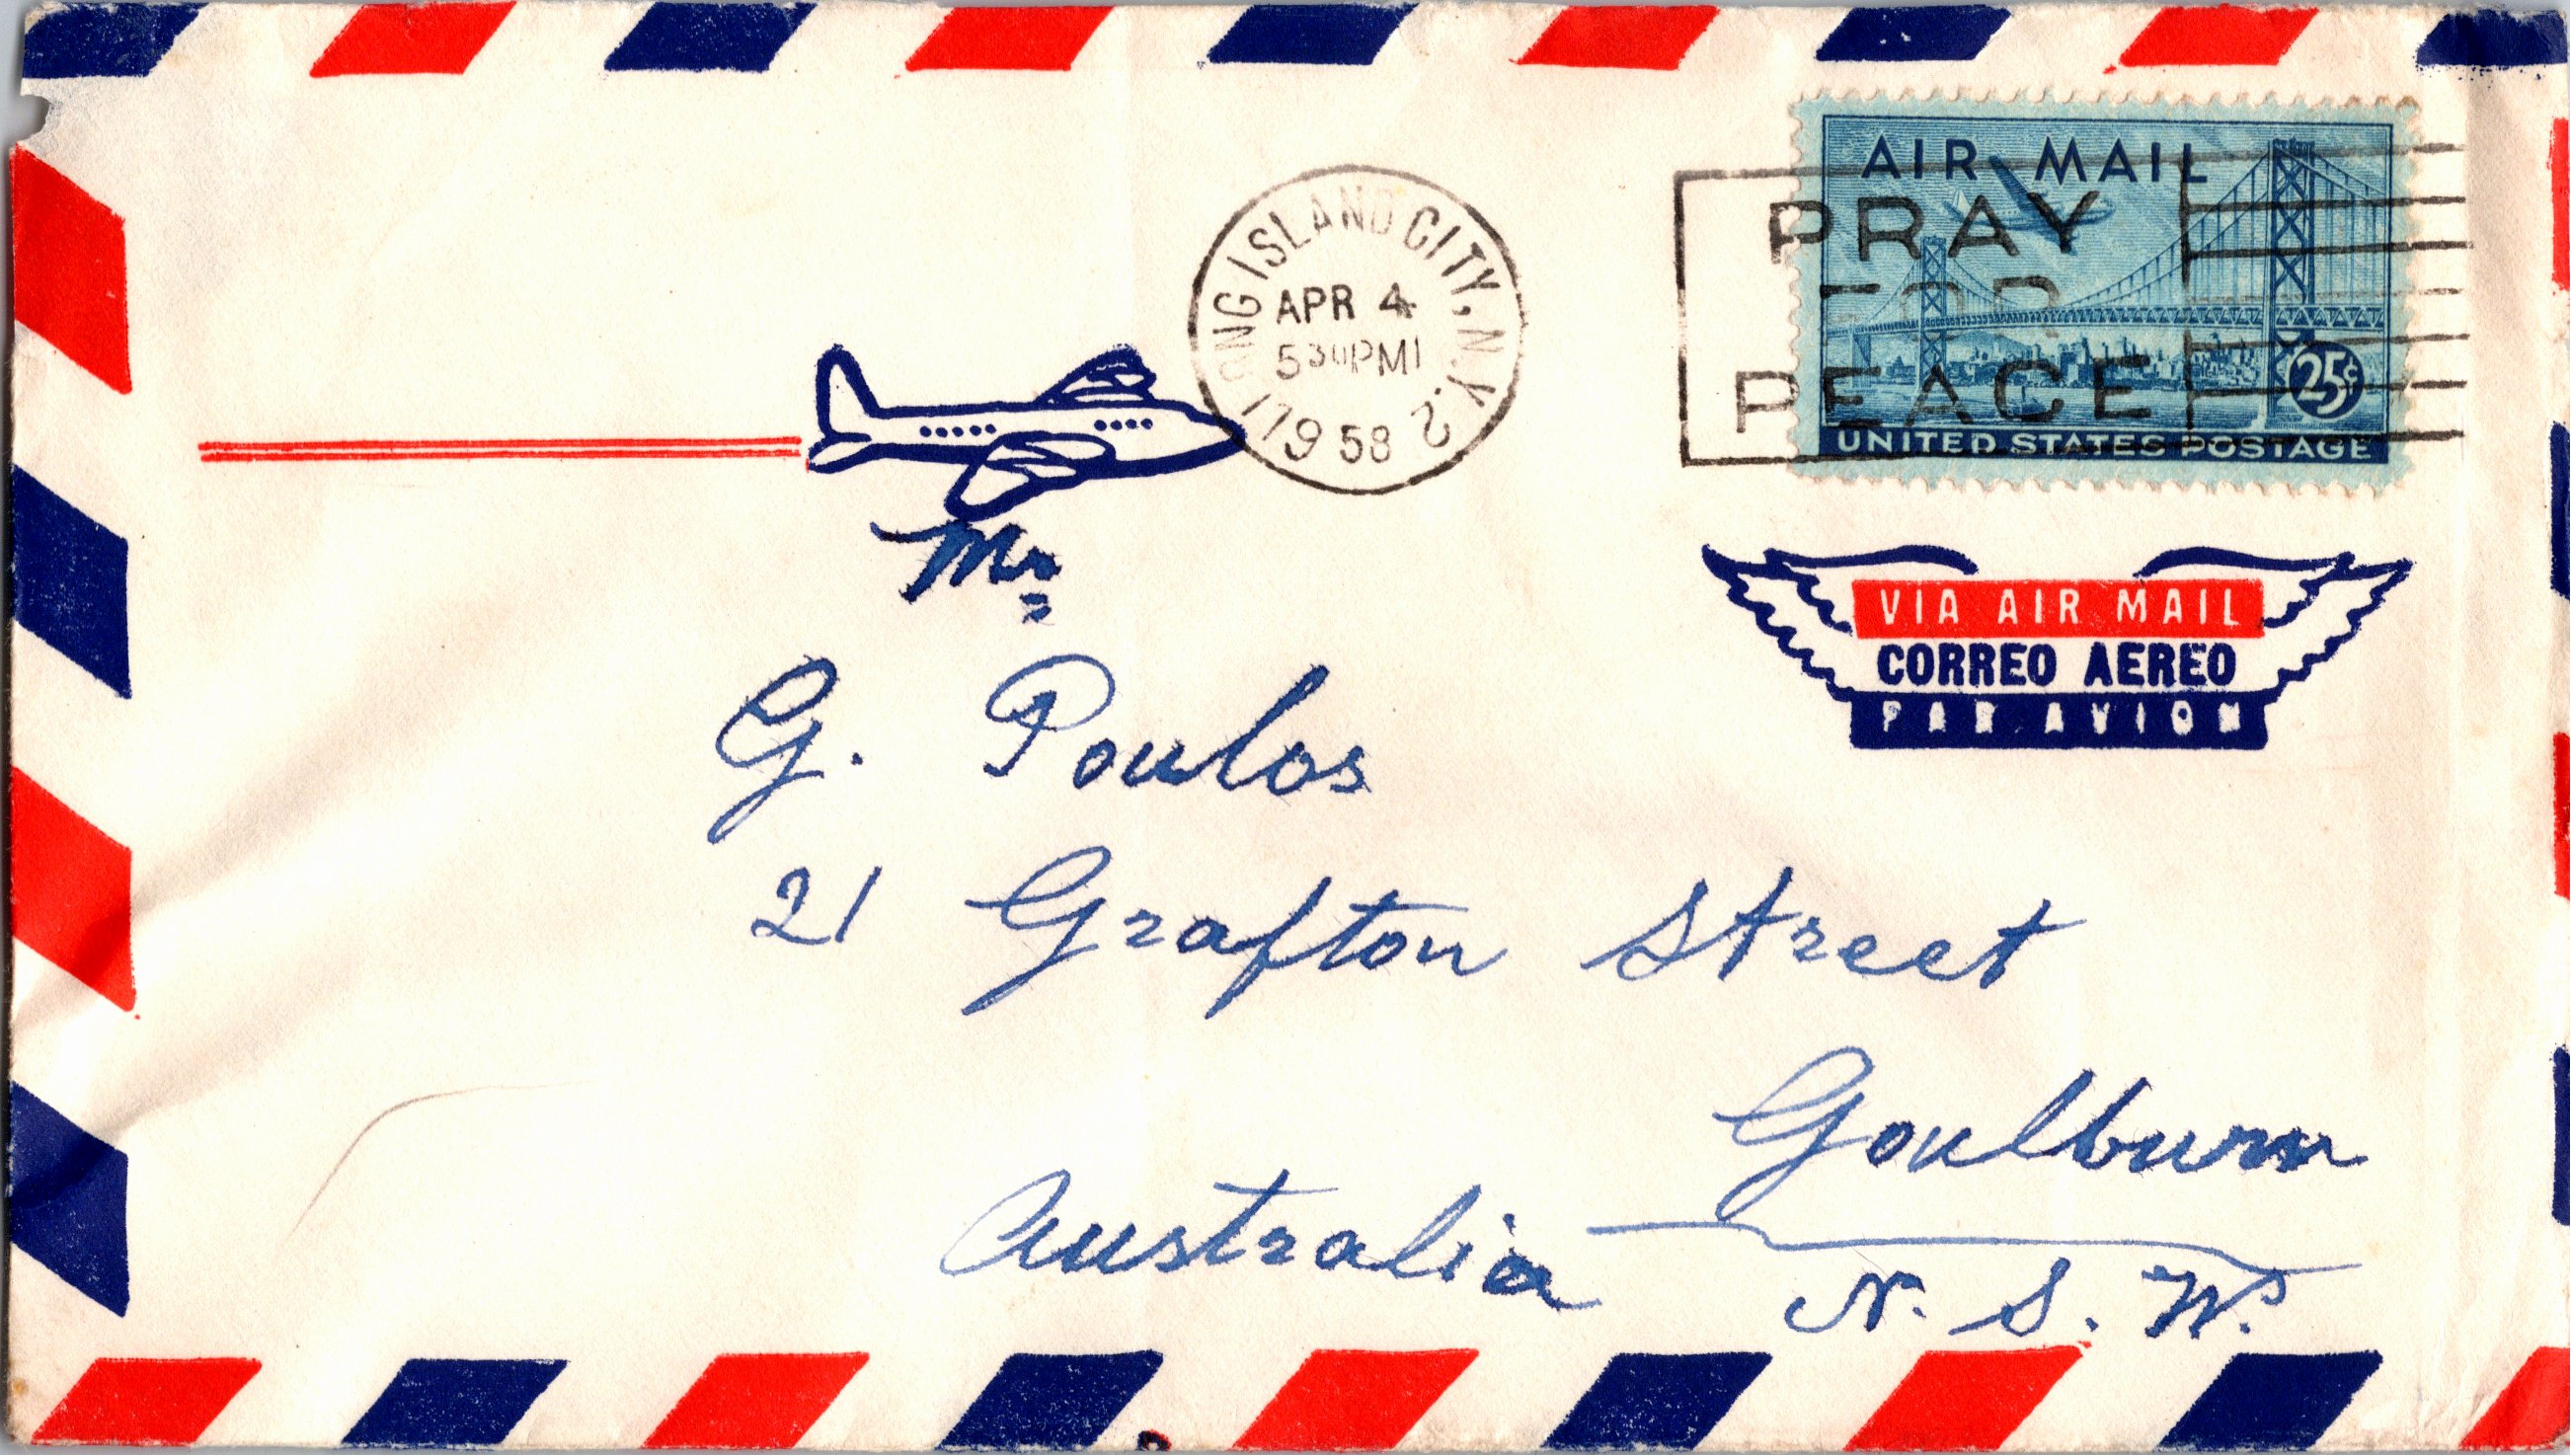 LONG ISLAND CITY, N.Y. 2
APR 4
530PM
1958
PRAY
FOR
PEACE
AIR MAIL
25¢
UNITED STATES POSTAGE
VIA AIR MAIL
CORREO AEREO
PAR AVION
Mr
G. Poulos
21 Grafton Street
Goulburn
Australia N. S. W.